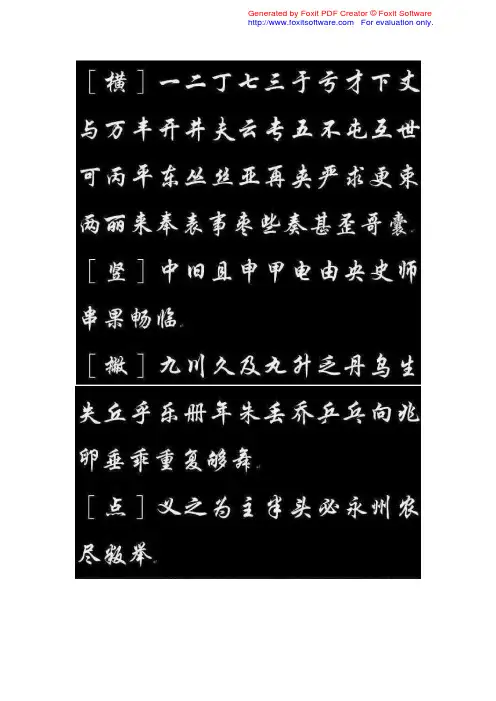 Generated by Foxit PDF Creator © Foxit Software
http://www.foxitsoftware.com For evaluation only.
［横］一二丁七三于亏才下丈
与万丰开井夫云专五不屯互世
可丙平东丛丝亚再夹严求更束
两丽来奉表事枣些奏甚歪哥囊。
［竖］中旧且申甲电由央史师
串果畅临。
［撇］九川久及丸升乏丹乌生
失丘乎乐册年朱丢乔乒乓向兆
卵垂乖重复够舞。
［点］义之为主半头必永州农
尽叛举。